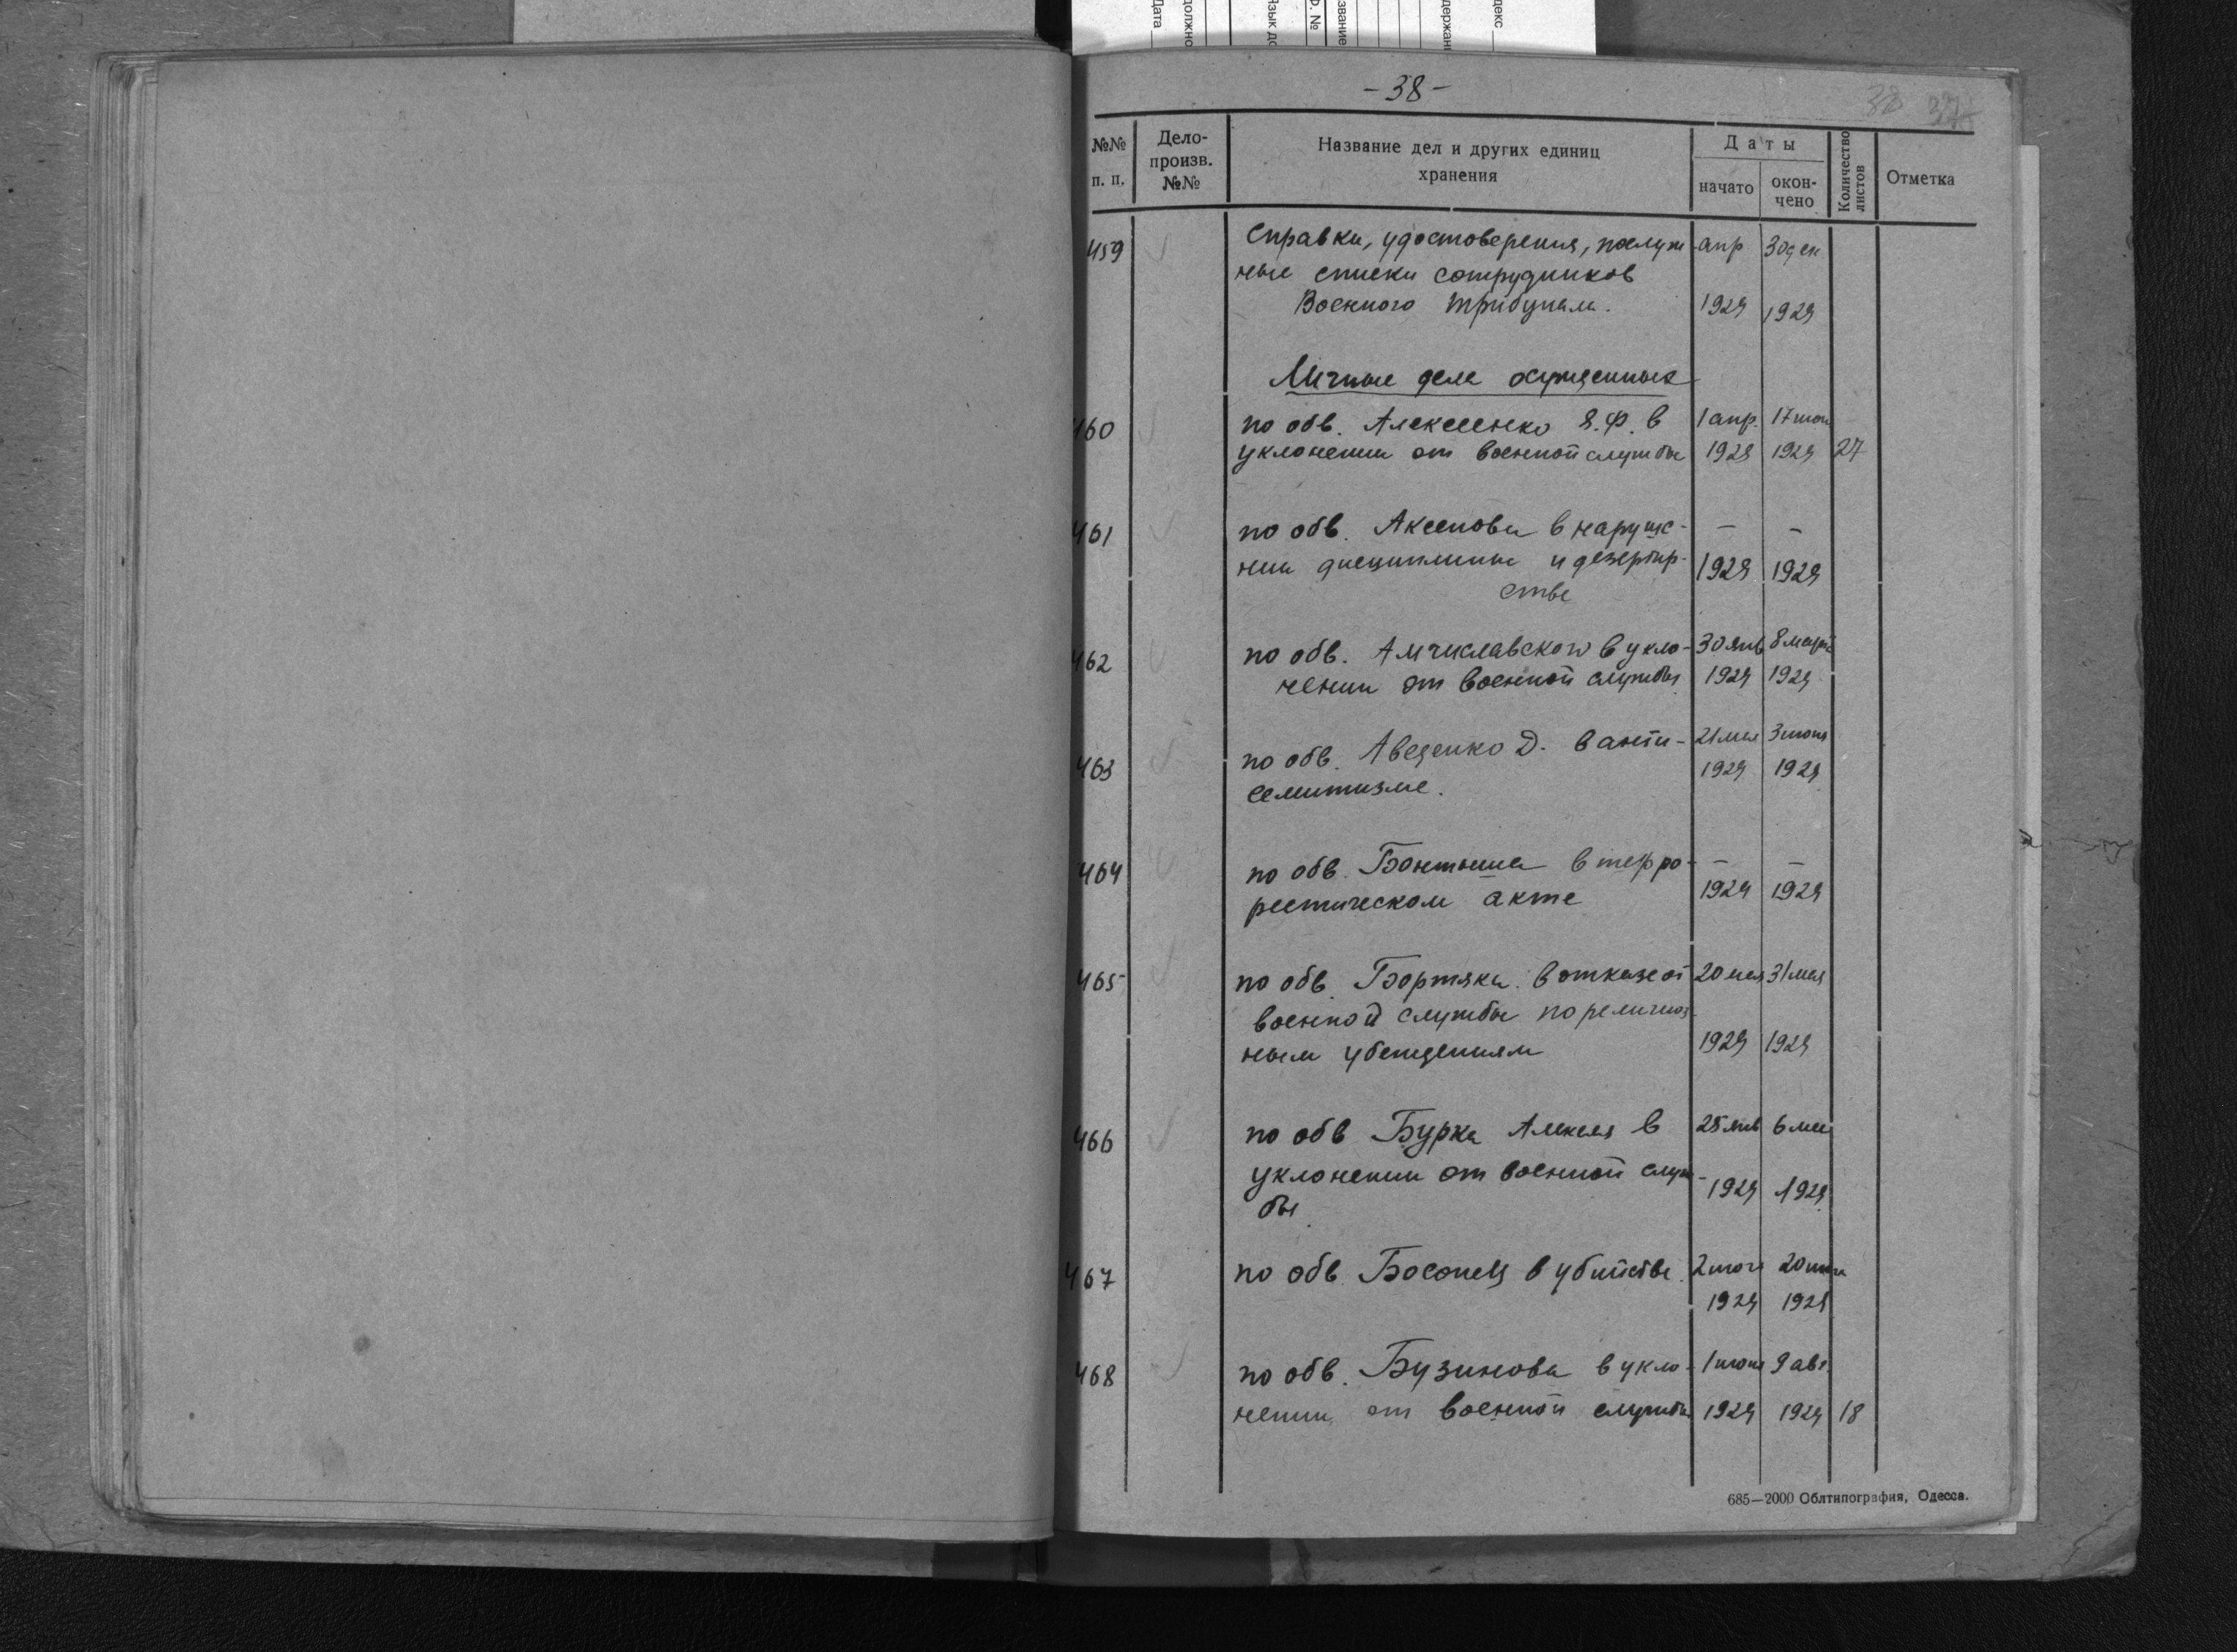 -38-
38 37
№№ п. п.
Дело-произв. №№
Название дел и других единиц хранения
Даты
начато
окончено
Количество листов
Отметка
459 Справки, удостоверения, послуж апр 30 дек
ные списки сотрудников
Военного трибунала. 1929 1929
Личные дела осужденных
460 по обв. Алексеенко Я.Ф. в 1 апр. 17 июн
уклонении от военной службы 1929 1929 27
461 по обв. Аксенова в наруше- — —
нии дисциплины и дезертир- 1929 1929
стве
462 по обв. Амчиславского в укло- 30 янв 8 марта
нении от военной службы 1929 1929
463 по обв. Аведенко Д. в анти- 21 мая 3 июня
семитизме. 1929 1929
464 по обв. Бонтыша в терро- — —
рестическом акте 1929 1929
465 по обв. Бортяка. в отказе от 20 мая 31 мая
военной службы по религиоз-
ным убеждениям 1929 1929
466 по обв Бурка Алексея в 25 янв 6 мая
уклонении от военной служ- 1929 1929
бы
467 по обв. Босонец в убийстве. 2 июня 20 июня
1929 1929
468 по обв. Бузинова в укло- 1 июня 9 авг.
нении от военной службы 1929 1929 18
685—2000 Облтипография, Одесса.